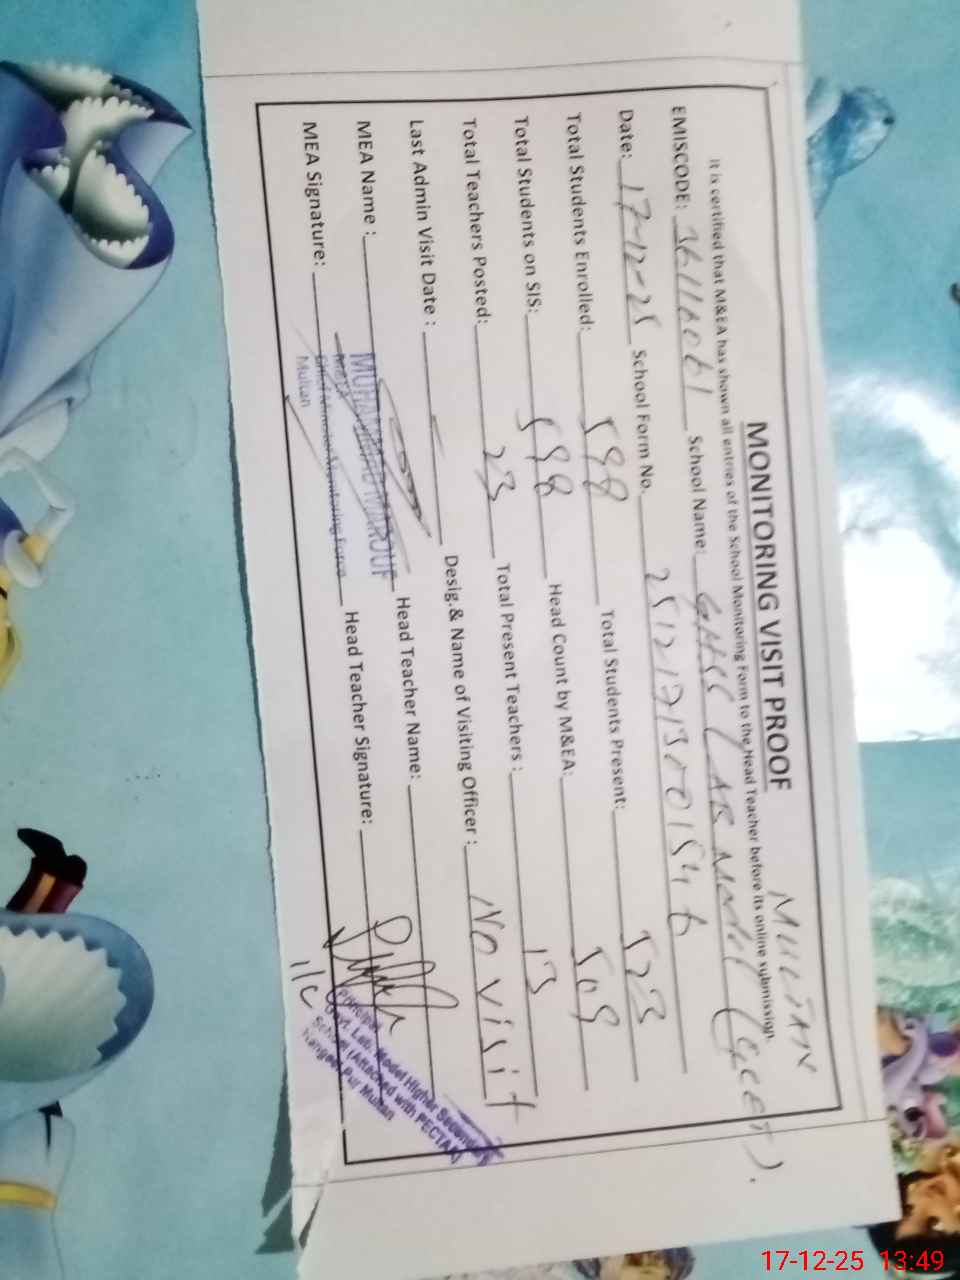 MONITORING VISIT PROOF
It is certified that M&EA has shown all entries of the School Monitoring Form to the Head Teacher before its online submission.
EMISCODE: 36110061 School Name: GHSS LAB Model (GCET).
MULTAN
Date: 17-12-25 School Form No. 25121713701546
Total Students Enrolled: 598 Total Students Present: 523
Total Students on SIS: 598 Head Count by M&EA: 509
Total Teachers Posted: 23 Total Present Teachers: 13
Last Admin Visit Date: Desig.& Name of Visiting Officer: No visit
MEA Name: MUHAMMAD MAROUF Head Teacher Name:
MEA Signature: Head Teacher Signature:
M&EA
Chief Minister Monitoring Force
Multan
I/C
Principal
Govt. Lab. Model Higher Secondary
School (Attached with PECTAA)
Rangeel Pur Multan
17-12-25 13:49